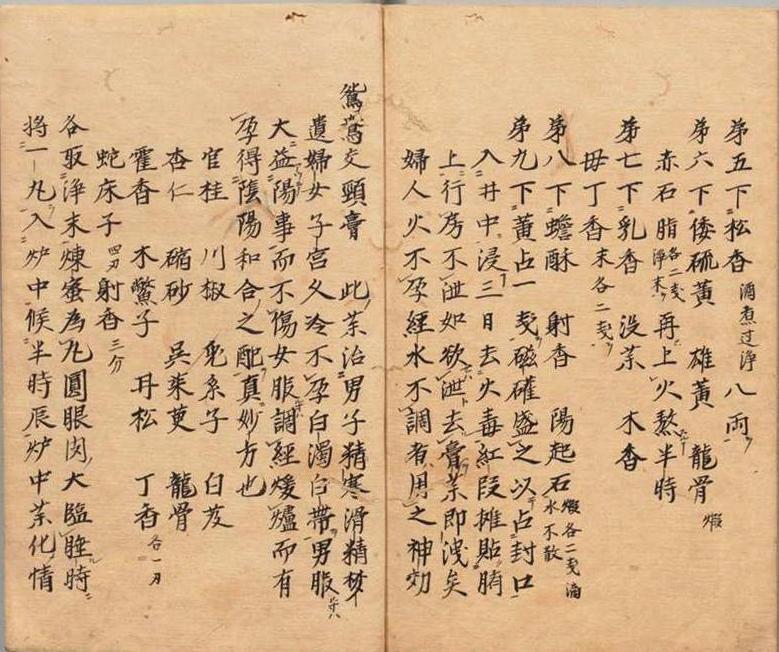 第五下松香 酒煮过净 八両
第六下倭硫黄 雄黄 龍骨 煆
赤石脂 各二戔净末 再上火熬半時
第七下乳香 没茶 木香
毋丁香末各二戔
第八下蟾酥 射香 陽起石 煆各二戔滴水不散
第九下黄占一戔磁確盛之以占封口
入井中浸三日去火毒紅段摊貼臍
上行房不泄如欲泄去膏茶即洩矣
婦人火不孕經水不調者用之神効
鴛鴦交頸膏 此茶治男子精寒滑精梦
遺婦女子宮久冷不孕白濁白帶男服
大益陽事而不傷女服調經煖爐而有
孕得陰陽和合之配真妙方也
官桂 川椒 兎糸子 白芨
杏仁 縮砂 呉茱萸 龍骨
霍香 木鱉子 丹松 丁香 各一刃
蛇床子 四刃 射香 三分
各取净末煉蜜為丸圓眼肉大臨睡時
將一丸入炉中候半時辰炉中茶化情